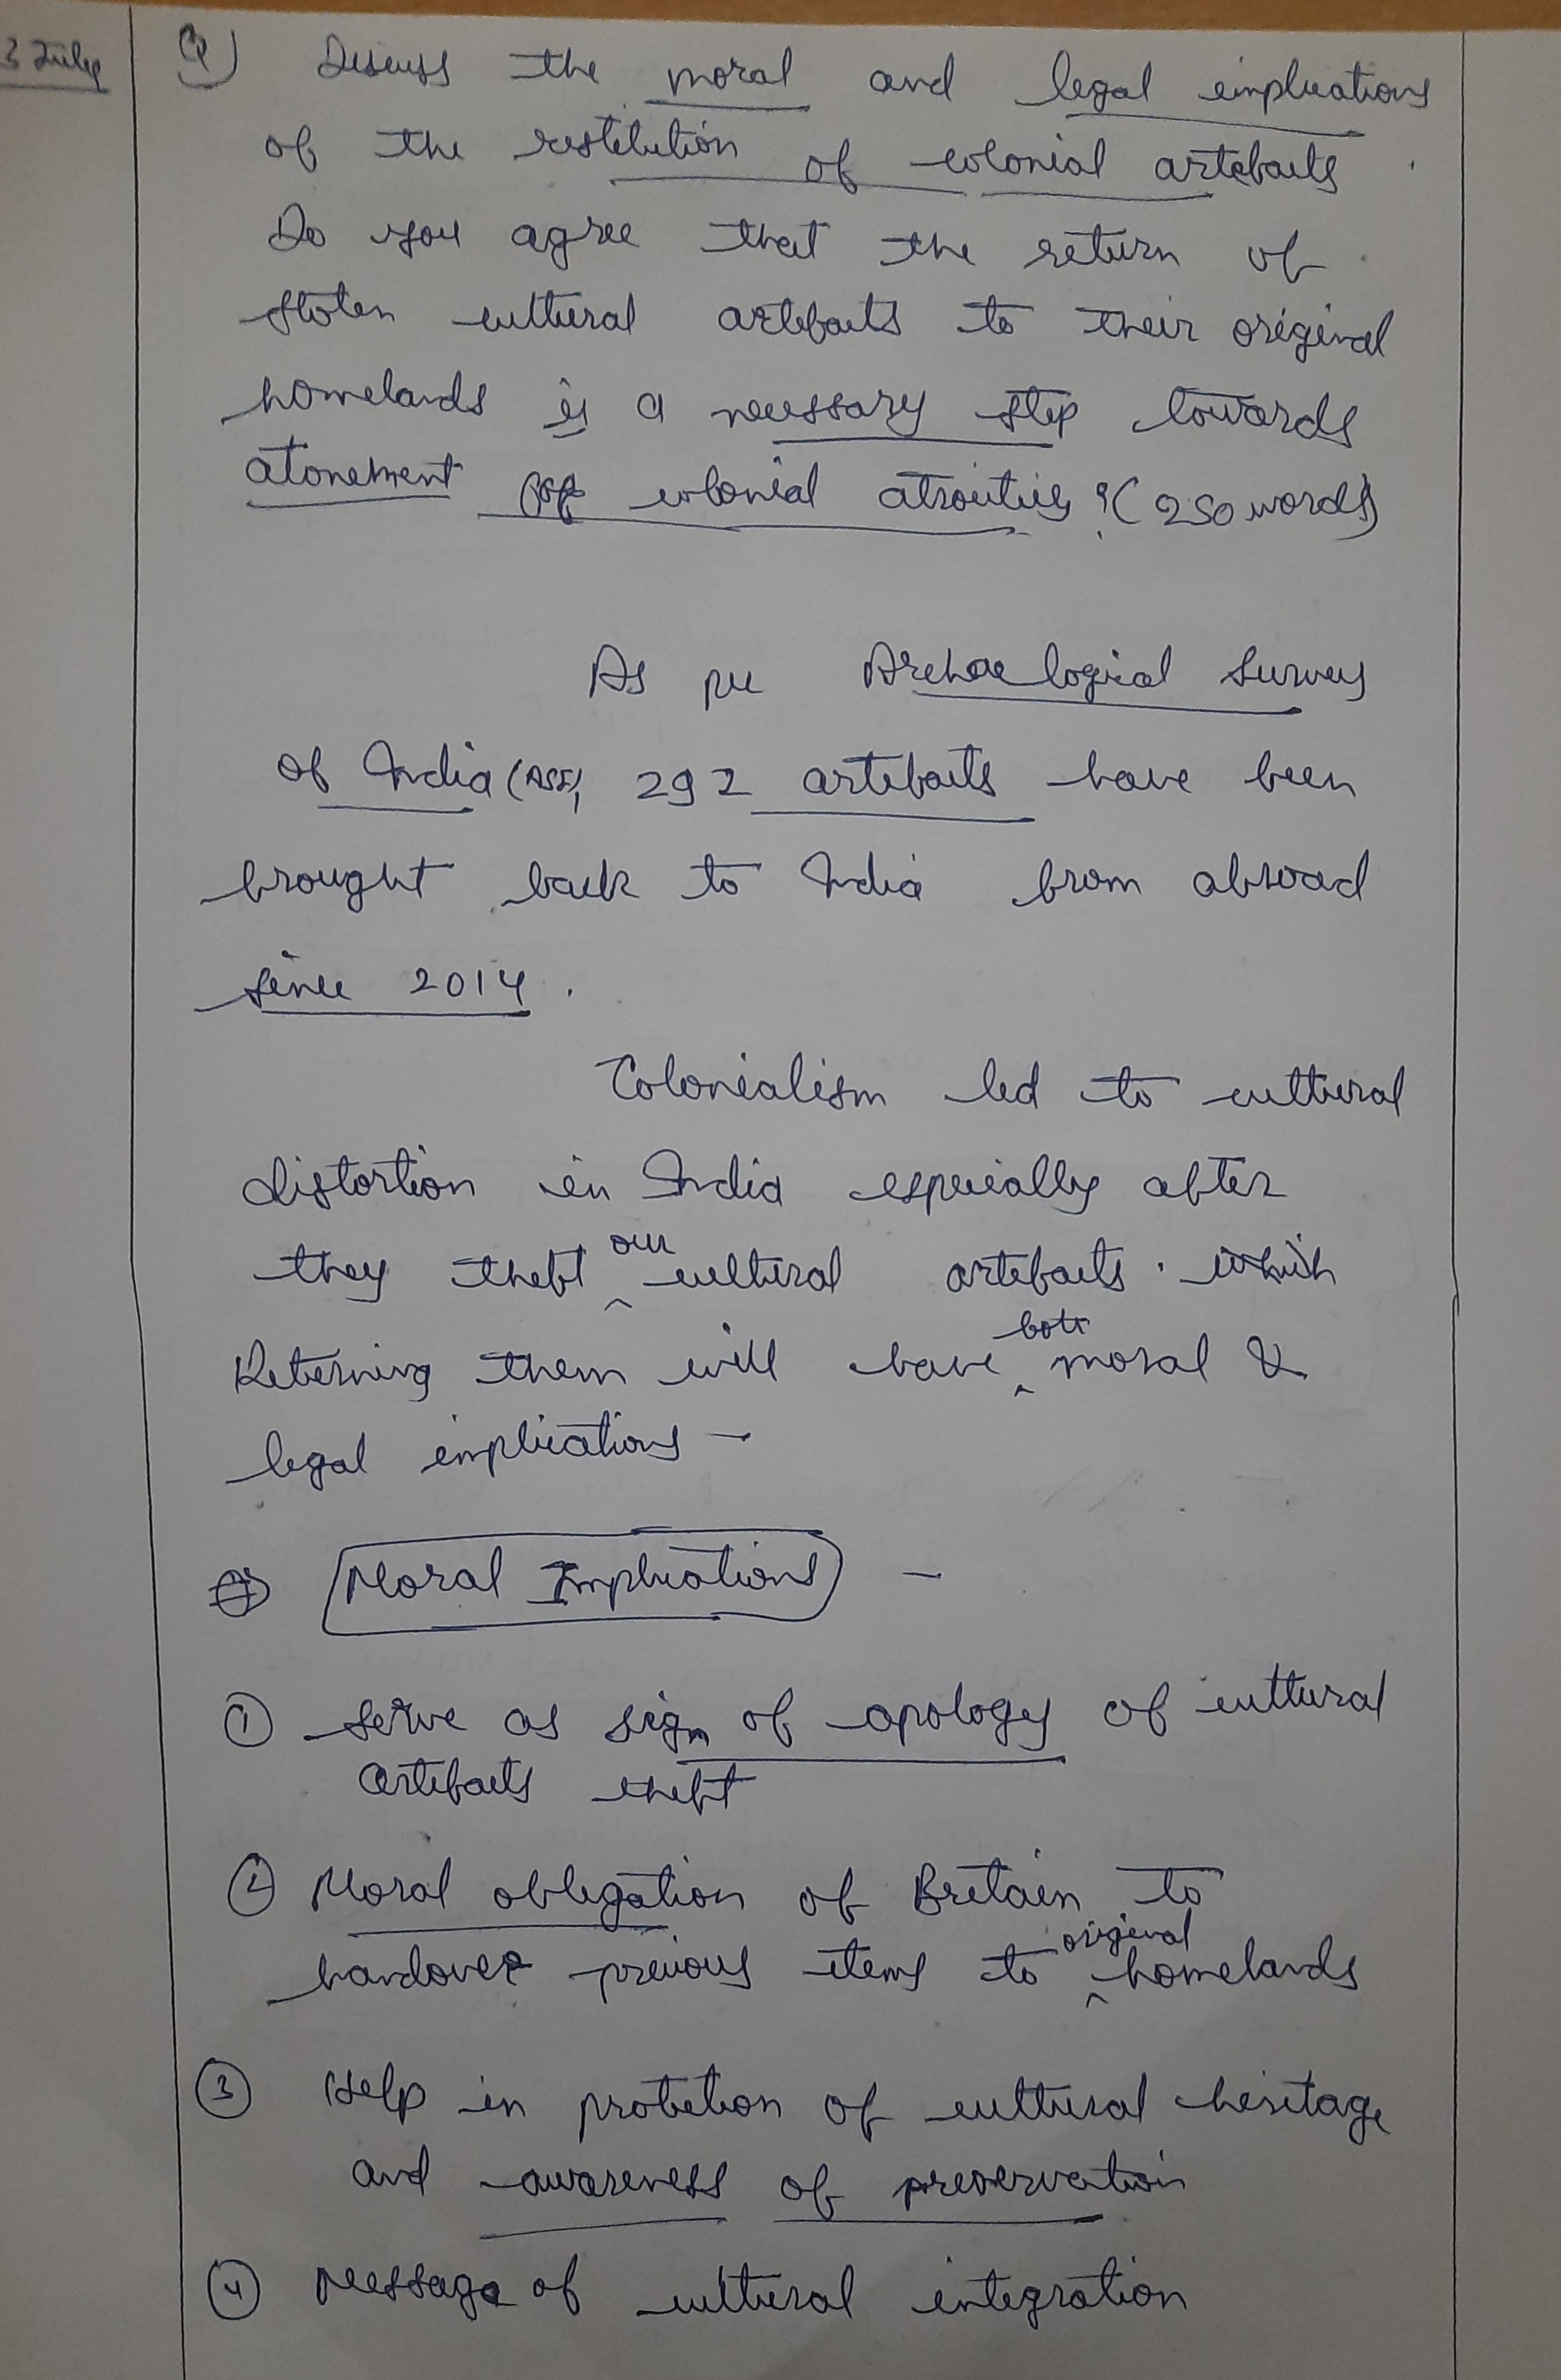 3 July
Q) Discuss the moral and legal implications
of the restitution of colonial artefacts.
Do you agree that the return of
stolen cultural artefacts to their original
homelands is a necessary step towards
atonement for colonial atrocities? (250 words)
As per Archaelogical Survey
of India (ASI), 292 artefacts have been
brought back to India from abroad
since 2014.
Colonialism led to cultural
distortion in India especially after
they theft our cultural artefacts. which
Reterning them will have both moral &
legal implications -
Moral Implications -
① Serve as sign of apology of cultural
artefacts theft
② Moral obligation of Britain to
handover precious items to original homelands
③ Help in protection of cultural heritage
and awareness of preservation
④ Message of cultural integration